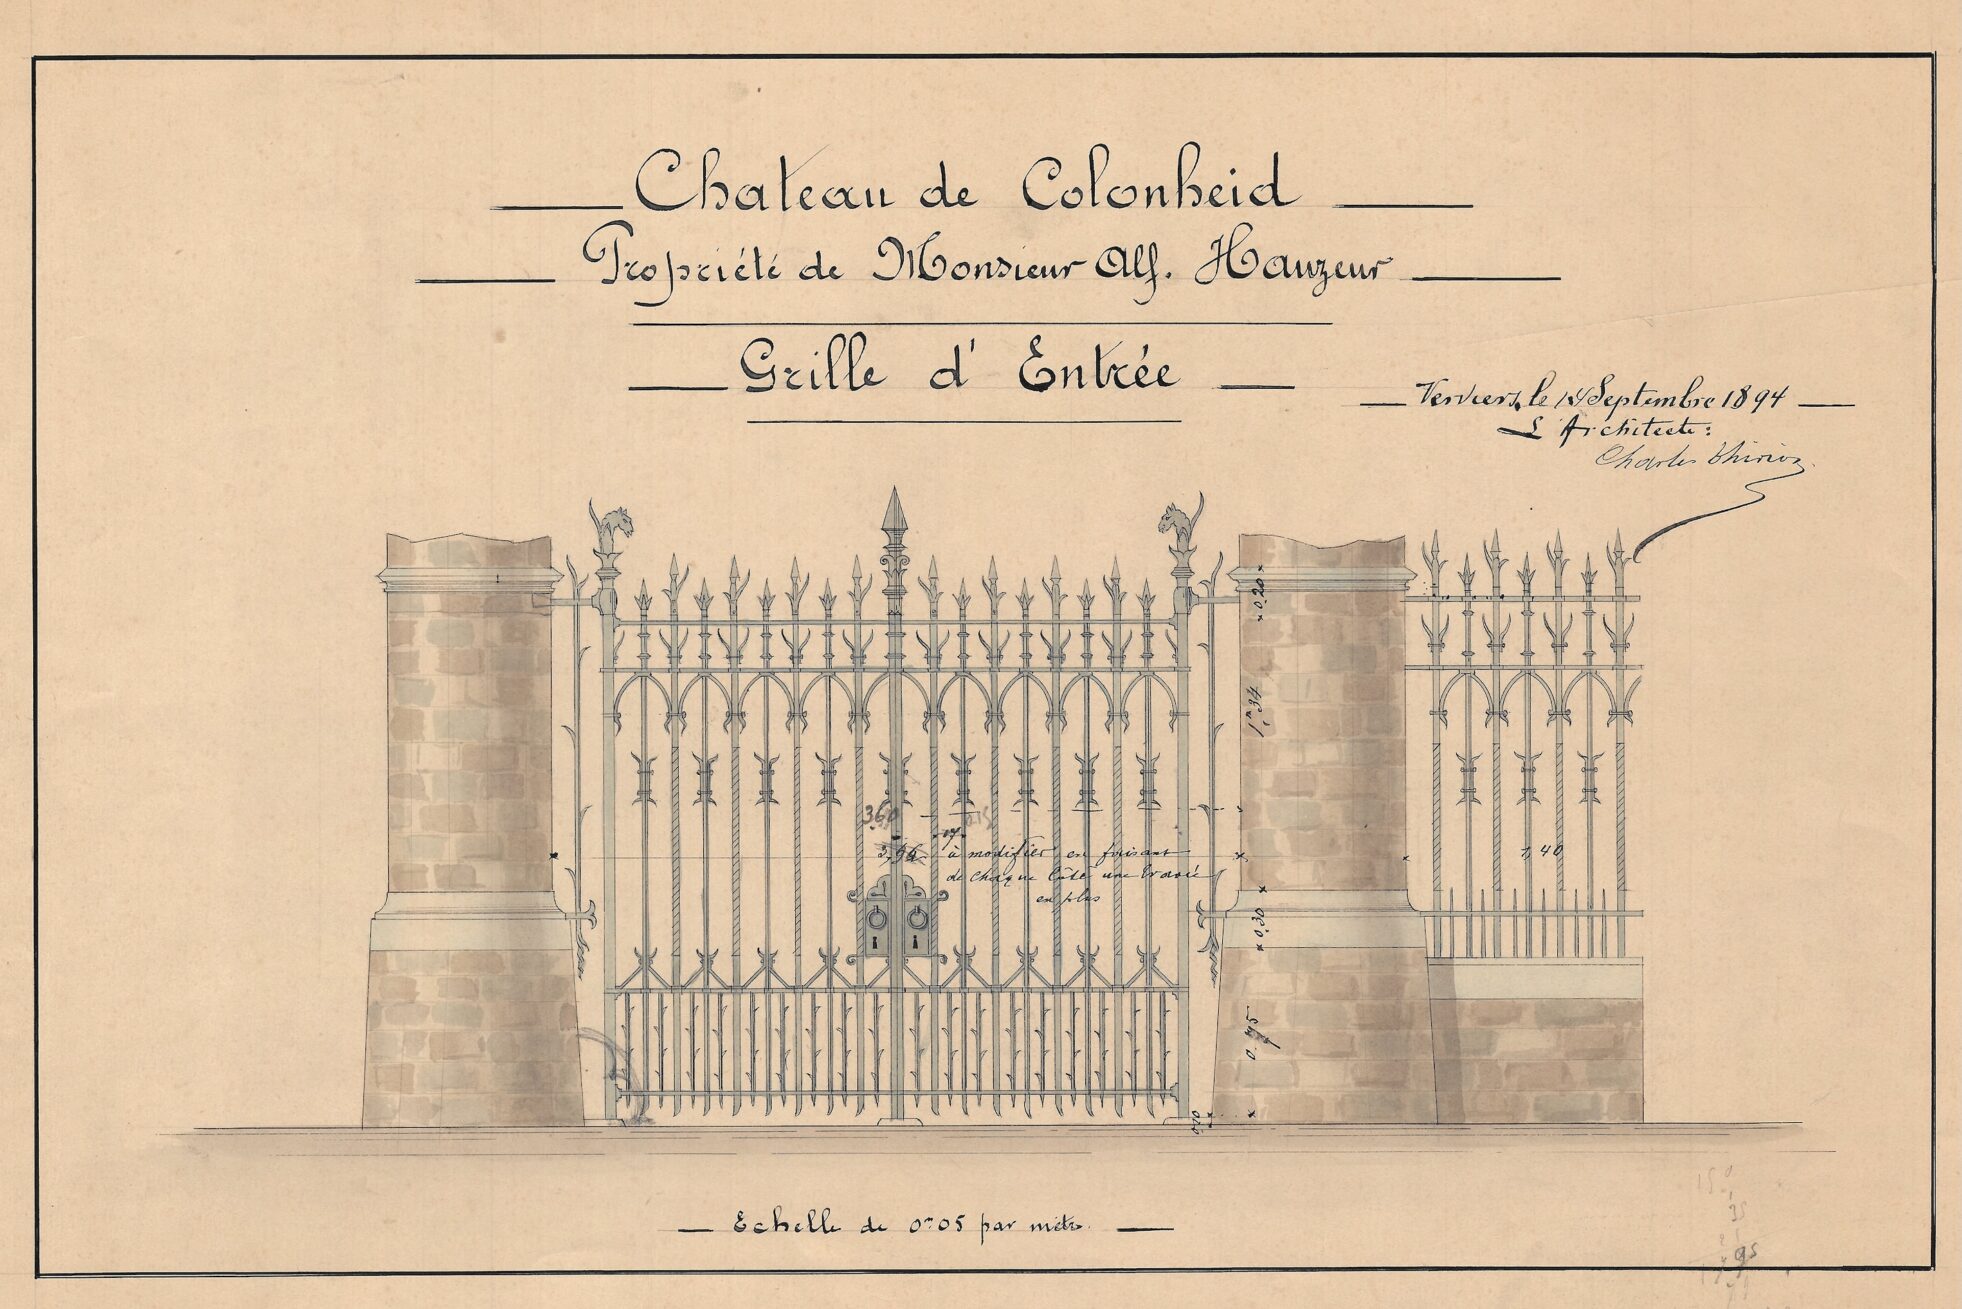 Chateau de Colonheid
Propriété de Monsieur Alf. Hauzeur
Grille d'Entrée
Verviers, le 14 Septembre 1894
L'Architecte:
Charles Thirion
0.20
1m34
3,60
0,15
17
3,96 à modifier en faisant
de chaque côté une travée
en plus
1,40
0.30
0.75
Echelle de 0m05 par mètre.
95